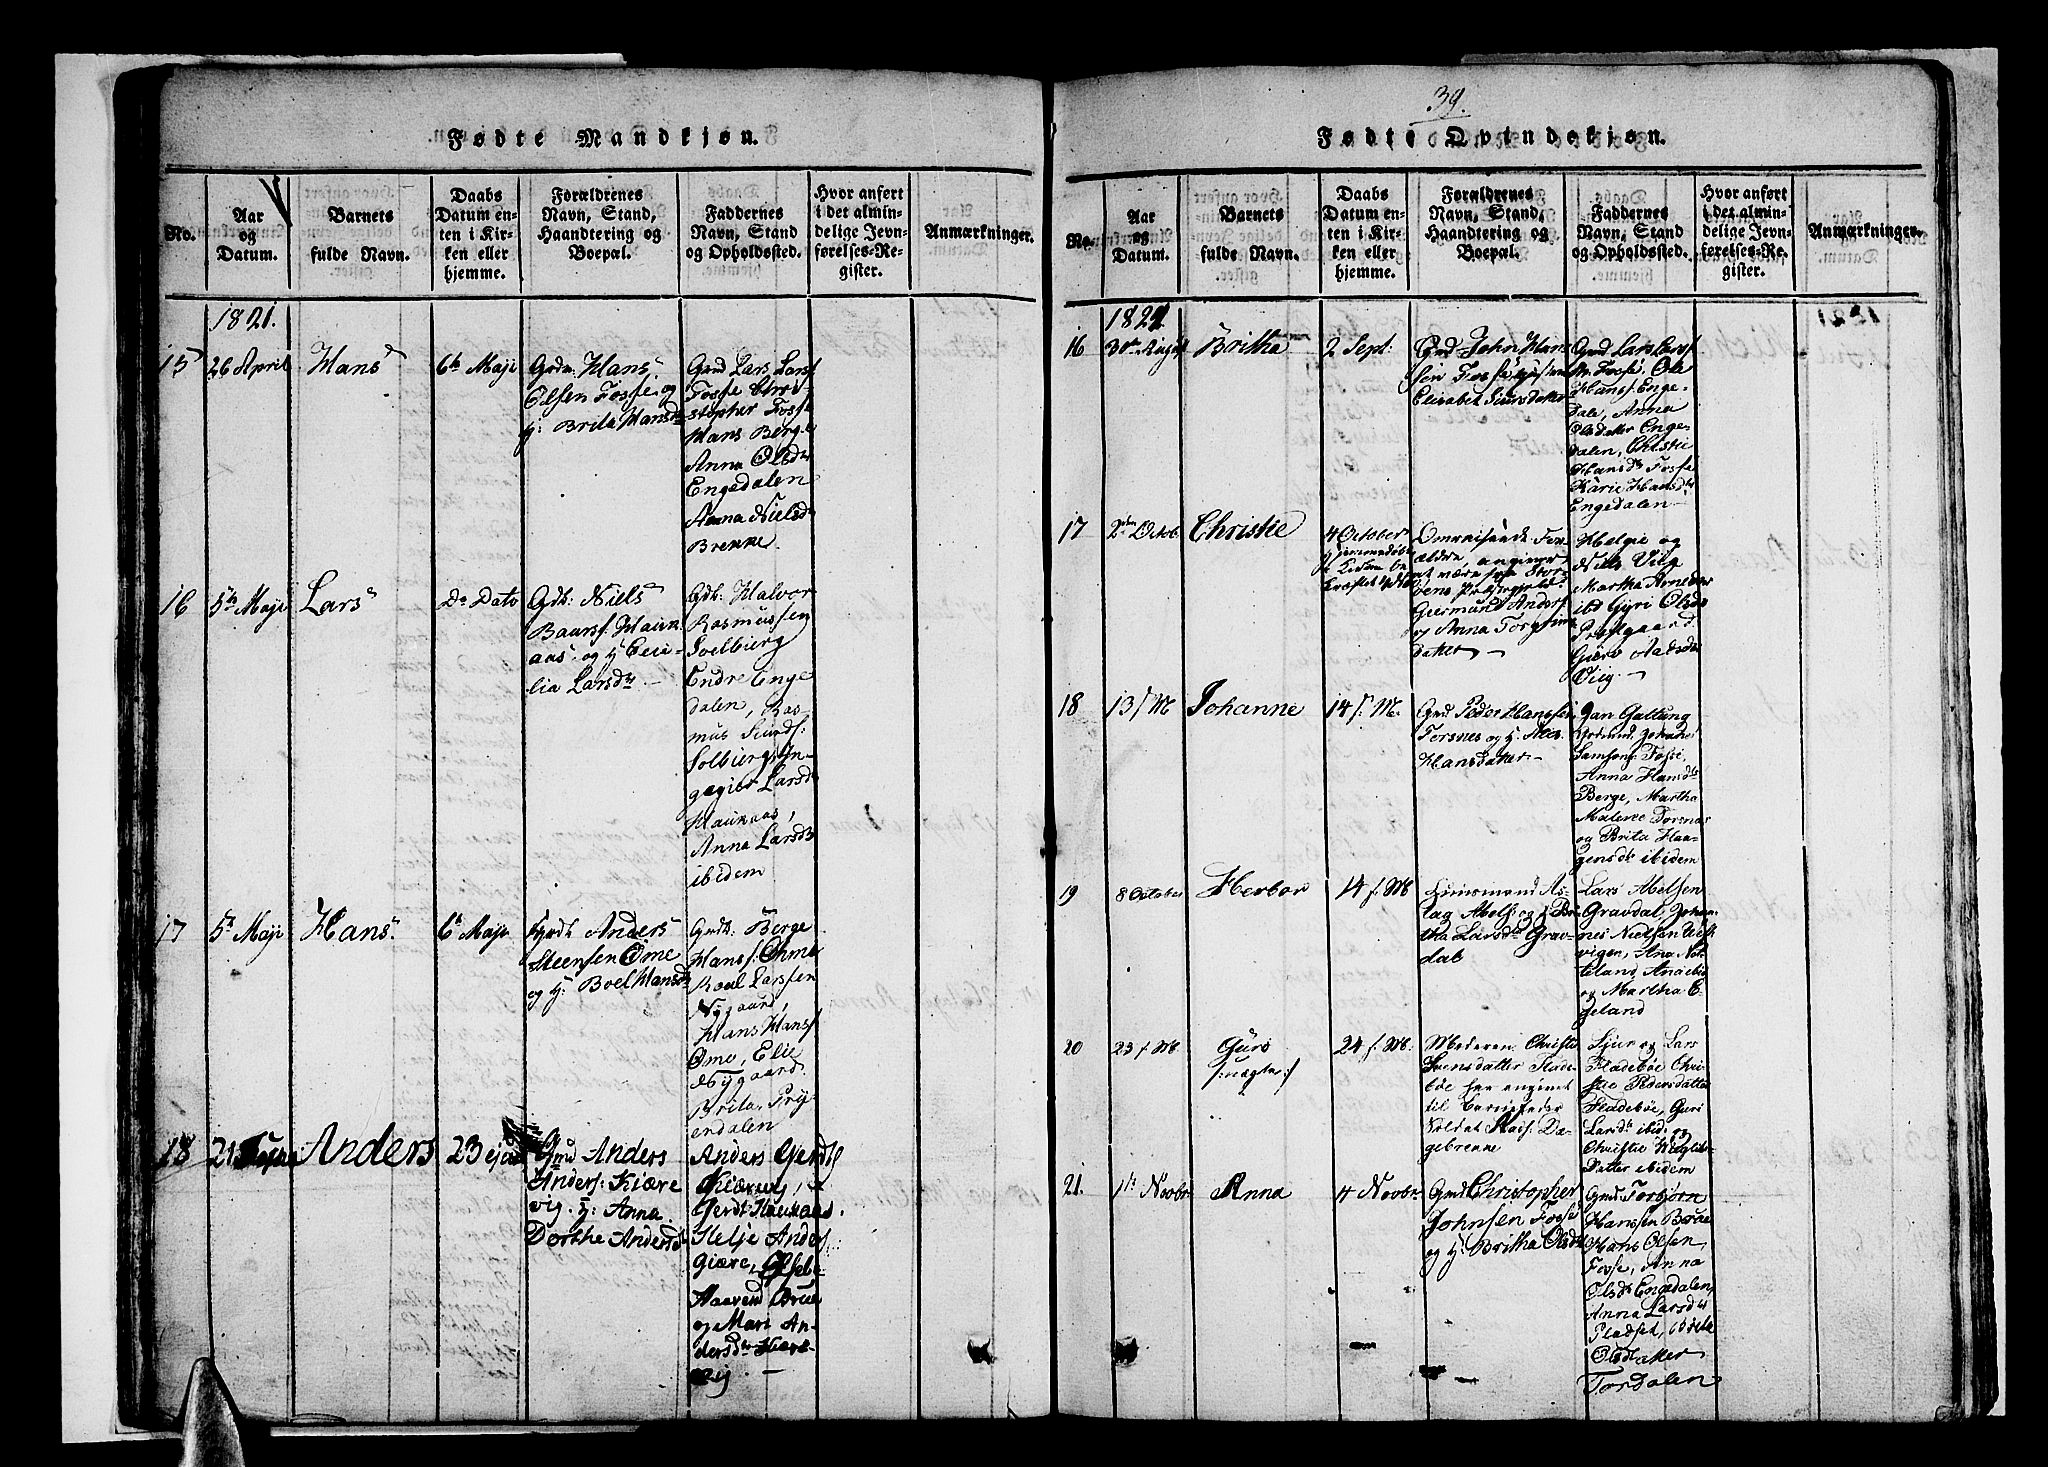 39.
Fødte Mandkjøn.
No.
Aar
og
Datum.
Barnets
fulde Navn.
Daabs
Datum en-
ten i Kir-
ken eller
hjemme.
Forældrenes
Navn, Stand,
Haandtering og
Boepæl.
Faddernes
Navn, Stand
og Opholdssted.
Hvor anført
i det almin-
delige Jevn-
førelses-Re-
gister.
Anmærkninger.
1821.
15
26 April
Hans
6te Maji
Grdm. Hans
Olsen Fosse og
H: Brita Hansd
Gmd Lars Lars
Fosse Chri-
stopher Fosse
Hans Berge
Anna Olsdr
Engedalen
Anna Nielsdr
Brekke
16
5te Maji
Lars
Do Dato
Gdb: Niels
Baars. Hauk
aas og H Ceci-
lia Larsdtr
Gdb: Halvor
Rasmussen
Solbierg
Endre Enge
dalen, Ras
mus Siurds:
Solbierg, In-
gegier Larsdr
Haukaas,
Anna Larsdtr
ibidem
17
5te Maji
Hans
6te Maji
Anders
Steensen Ome
og H: Boel Hansdr
Gmd: Berge
Hans: Ohme
Roal Larssen
Nygaard,
Hans Hans
Ome, Elie
Nygaard
Brita
endalen
18
21
Anders
23
Gmd Anders
Anders: Kiære
vig. H: Anna
Dorthe Andersd
Anders Gerdts
Kiærvig,
Gerdt Haukaas
Helje Anders
Giære,
og Mari An-
dersdtr Kiære
vig
Fødte Qvindekjøn.
No.
Aar
og
Datum.
Barnets
fulde Navn.
Daabs
Datum en-
ten i Kir-
ken eller
hjemme.
Forældrenes
Navn, Stand,
Haandtering og
Boepæl.
Faddernes
Navn, Stand
og Opholdssted.
Hvor anført
i det almin-
delige Jevn-
førelses-Re-
gister.
Anmærkninger.
1821
16
30te August
Britha
2 Sept:
Gmd John Han
sen Fosse og Hustru
Elisabet Siursdatter
Gmd Lars Lars
Fosse, Ole
Hans: Enge-
dale, Anna
Olsdatter Enge-
dalen, Christie
Hansdr Fosse
Karie Hansdtr
Engedalen
17
2den Octob.
Christie
4 October
Omreisende For-
ældre angiver
at være fra Stor-
øens Præstegield
Geermund Anders
og Anna Torgrims
datter
Helgie og
Nils Viig
Martha Arnedatter
ibd Gyri Olsdr
Prestgaard
Guro Aadsdr
Viig.
18
13 f M
Johanne
14 f. M.
Gmd Peder Hanssen
Torsnes og H. Alis
Hansdatter
Jan Gattung
Johannes
Samsons Fosse,
Anna Hansdtr
Berge, Martha
Malene Torsnes
og Brita Haa-
gensdtr ibidem
19
8 October
Herbor
14 f. M
Huusmand As-
lag Abels og H Bri-
tha Larsdtr Grav-
dal
Lars Abelsen
Gravdal, Johan-
nes Nielsen
vigen, Ana
og Martha E-
geland
20
23 f. M.
Guro
/:uægte:/
24 f. M.
Moderen Christi
Svensdatter Flade-
bøe har angivet
til Barnefader
Soldat Da-
gebrenne
Sjur og Lars
Fladebøe Chri-
stie Pedersdatter
Fladebøe, Guri
Larsdtr ibid: og
Christie
Datter ibidem
21.
1te Novbr
Anna
4 Novbr.
Gmd Christopher
Johnsen Fosse
og H: Britha Olsdtr
Gmd Torbjørn
Hanssen Børve
Hans Olsen,
Fosse, Anna
Olsdtr Engedalen,
Anna Larsdtr
Fladset, Brite
Olsdatter
Tordalen